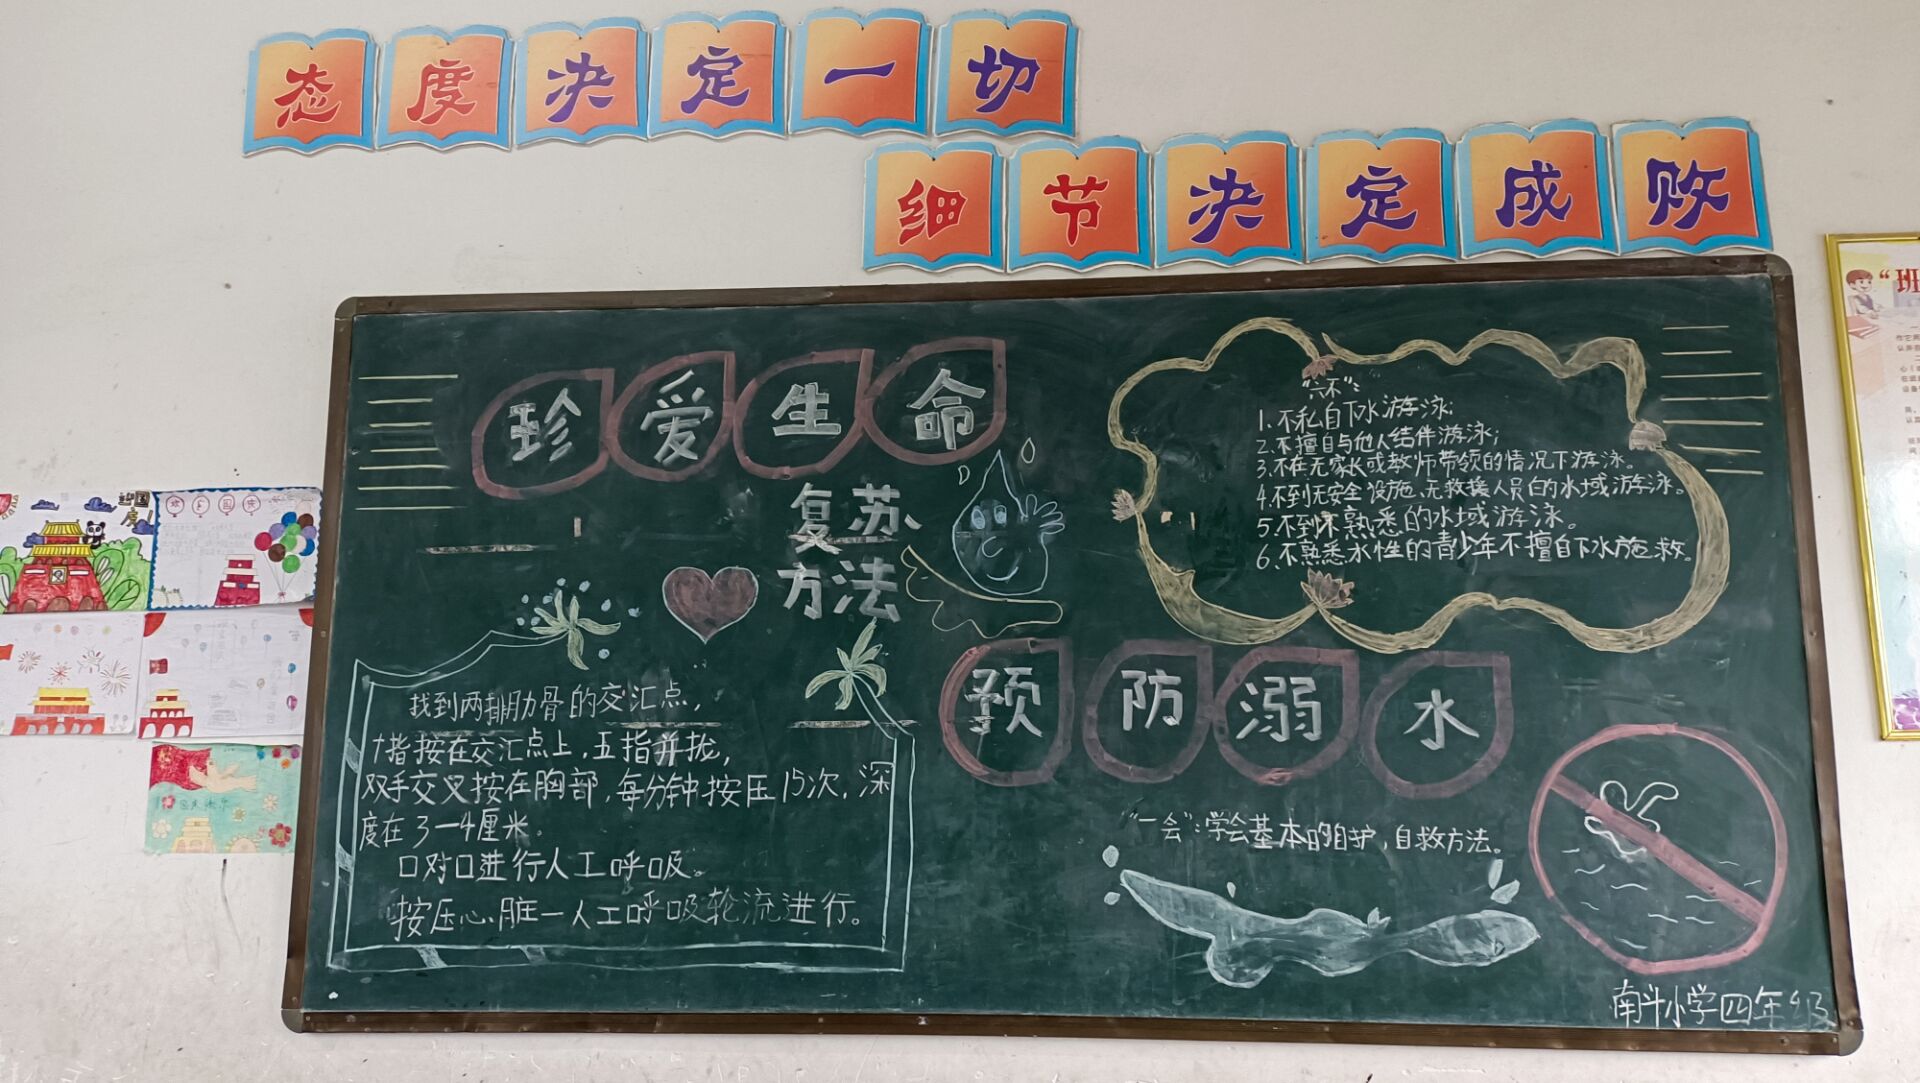 态度决定一切
细节决定成败
珍爱生命
复苏
方法
"六不"：
1.不私自下水游泳；
2.不擅自与他人结伴游泳；
3.不在无家长或教师带领的情况下游泳。
4.不到无安全设施、无救援人员的水域游泳。
5.不到不熟悉的水域游泳。
6.不熟悉水性的青少年不擅自下水施救。
预防溺水
找到两排肋骨的交汇点，
个指按在交汇点上，五指并拢，
双手交叉按在胸部，每分钟按压15次，深
度在3—4厘米。
口对口进行人工呼吸。
按压心脏—人工呼吸轮流进行。
"一会"：学会基本的自护，自救方法。
南斗小学四年级
"班